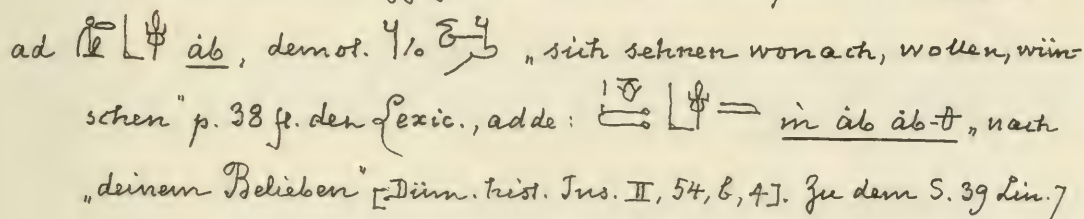 ad áb, demot. „sich sehnen wonach, wollen, wün-
schen“ p. 38 fl. den Lexic., adde: m áb áb-t „nach
„deinem Belieben“ [Düm. hist. Ins. II, 54, b, 4]. Zu dem S. 39 Lin. 7